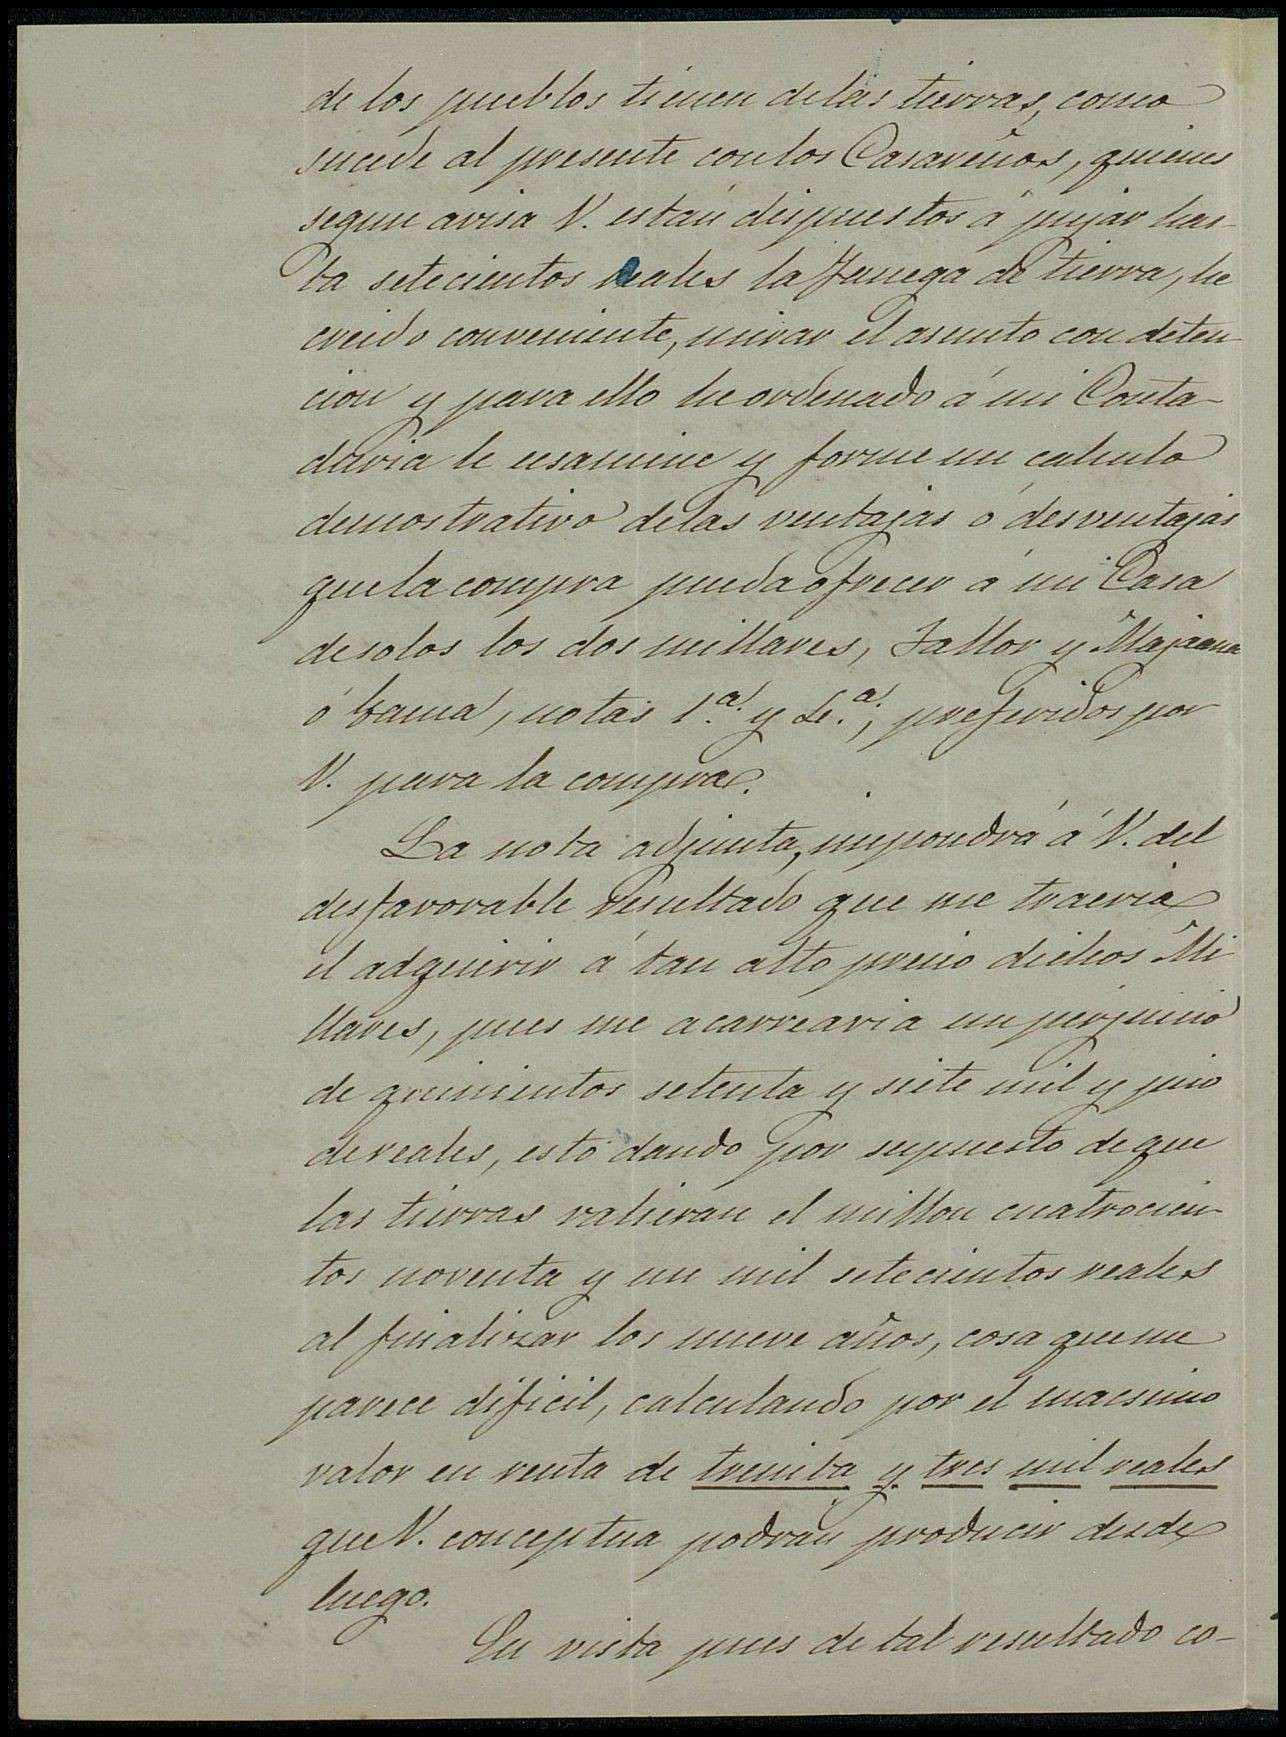 de los pueblos tienen de las tierras, como
sucede al presente con los Casareños, quienes
segun avisa V. están dispuestos á pujar has-
ta setecientos reales la fanega de tierra, he
creido conveniente, mirar el asunto con deten
cion y para ello he ordenado á mi Conta-
duria le ecsamine y forme un calculo
demostrativo de las ventajas ó desventajas
que la compra pueda ofrecer á mi Casa
de solos los dos millares, y
ó Cama, notas 1.ª y 2.ª, preferidos por
V. para la compra.
La nota adjunta, impondrá á V. del
desfavorable resultado que me traeria
el adquirir á tan alto precio dichos Mi
llares, pues me acarrearia un perjuicio
de quinientos setenta y siete mil y pico
de reales, esto dando por supuesto de que
las tierras valieran el millon cuatrocien-
tos noventa y un mil setecientos reales
al finalizar los nueve años, cosa que me
parece dificil, calculando por el macsimo
valor en renta de treinta y tres mil reales
que V. conceptua podrán producir desde
luego.
En vista pues de tal resultado co-